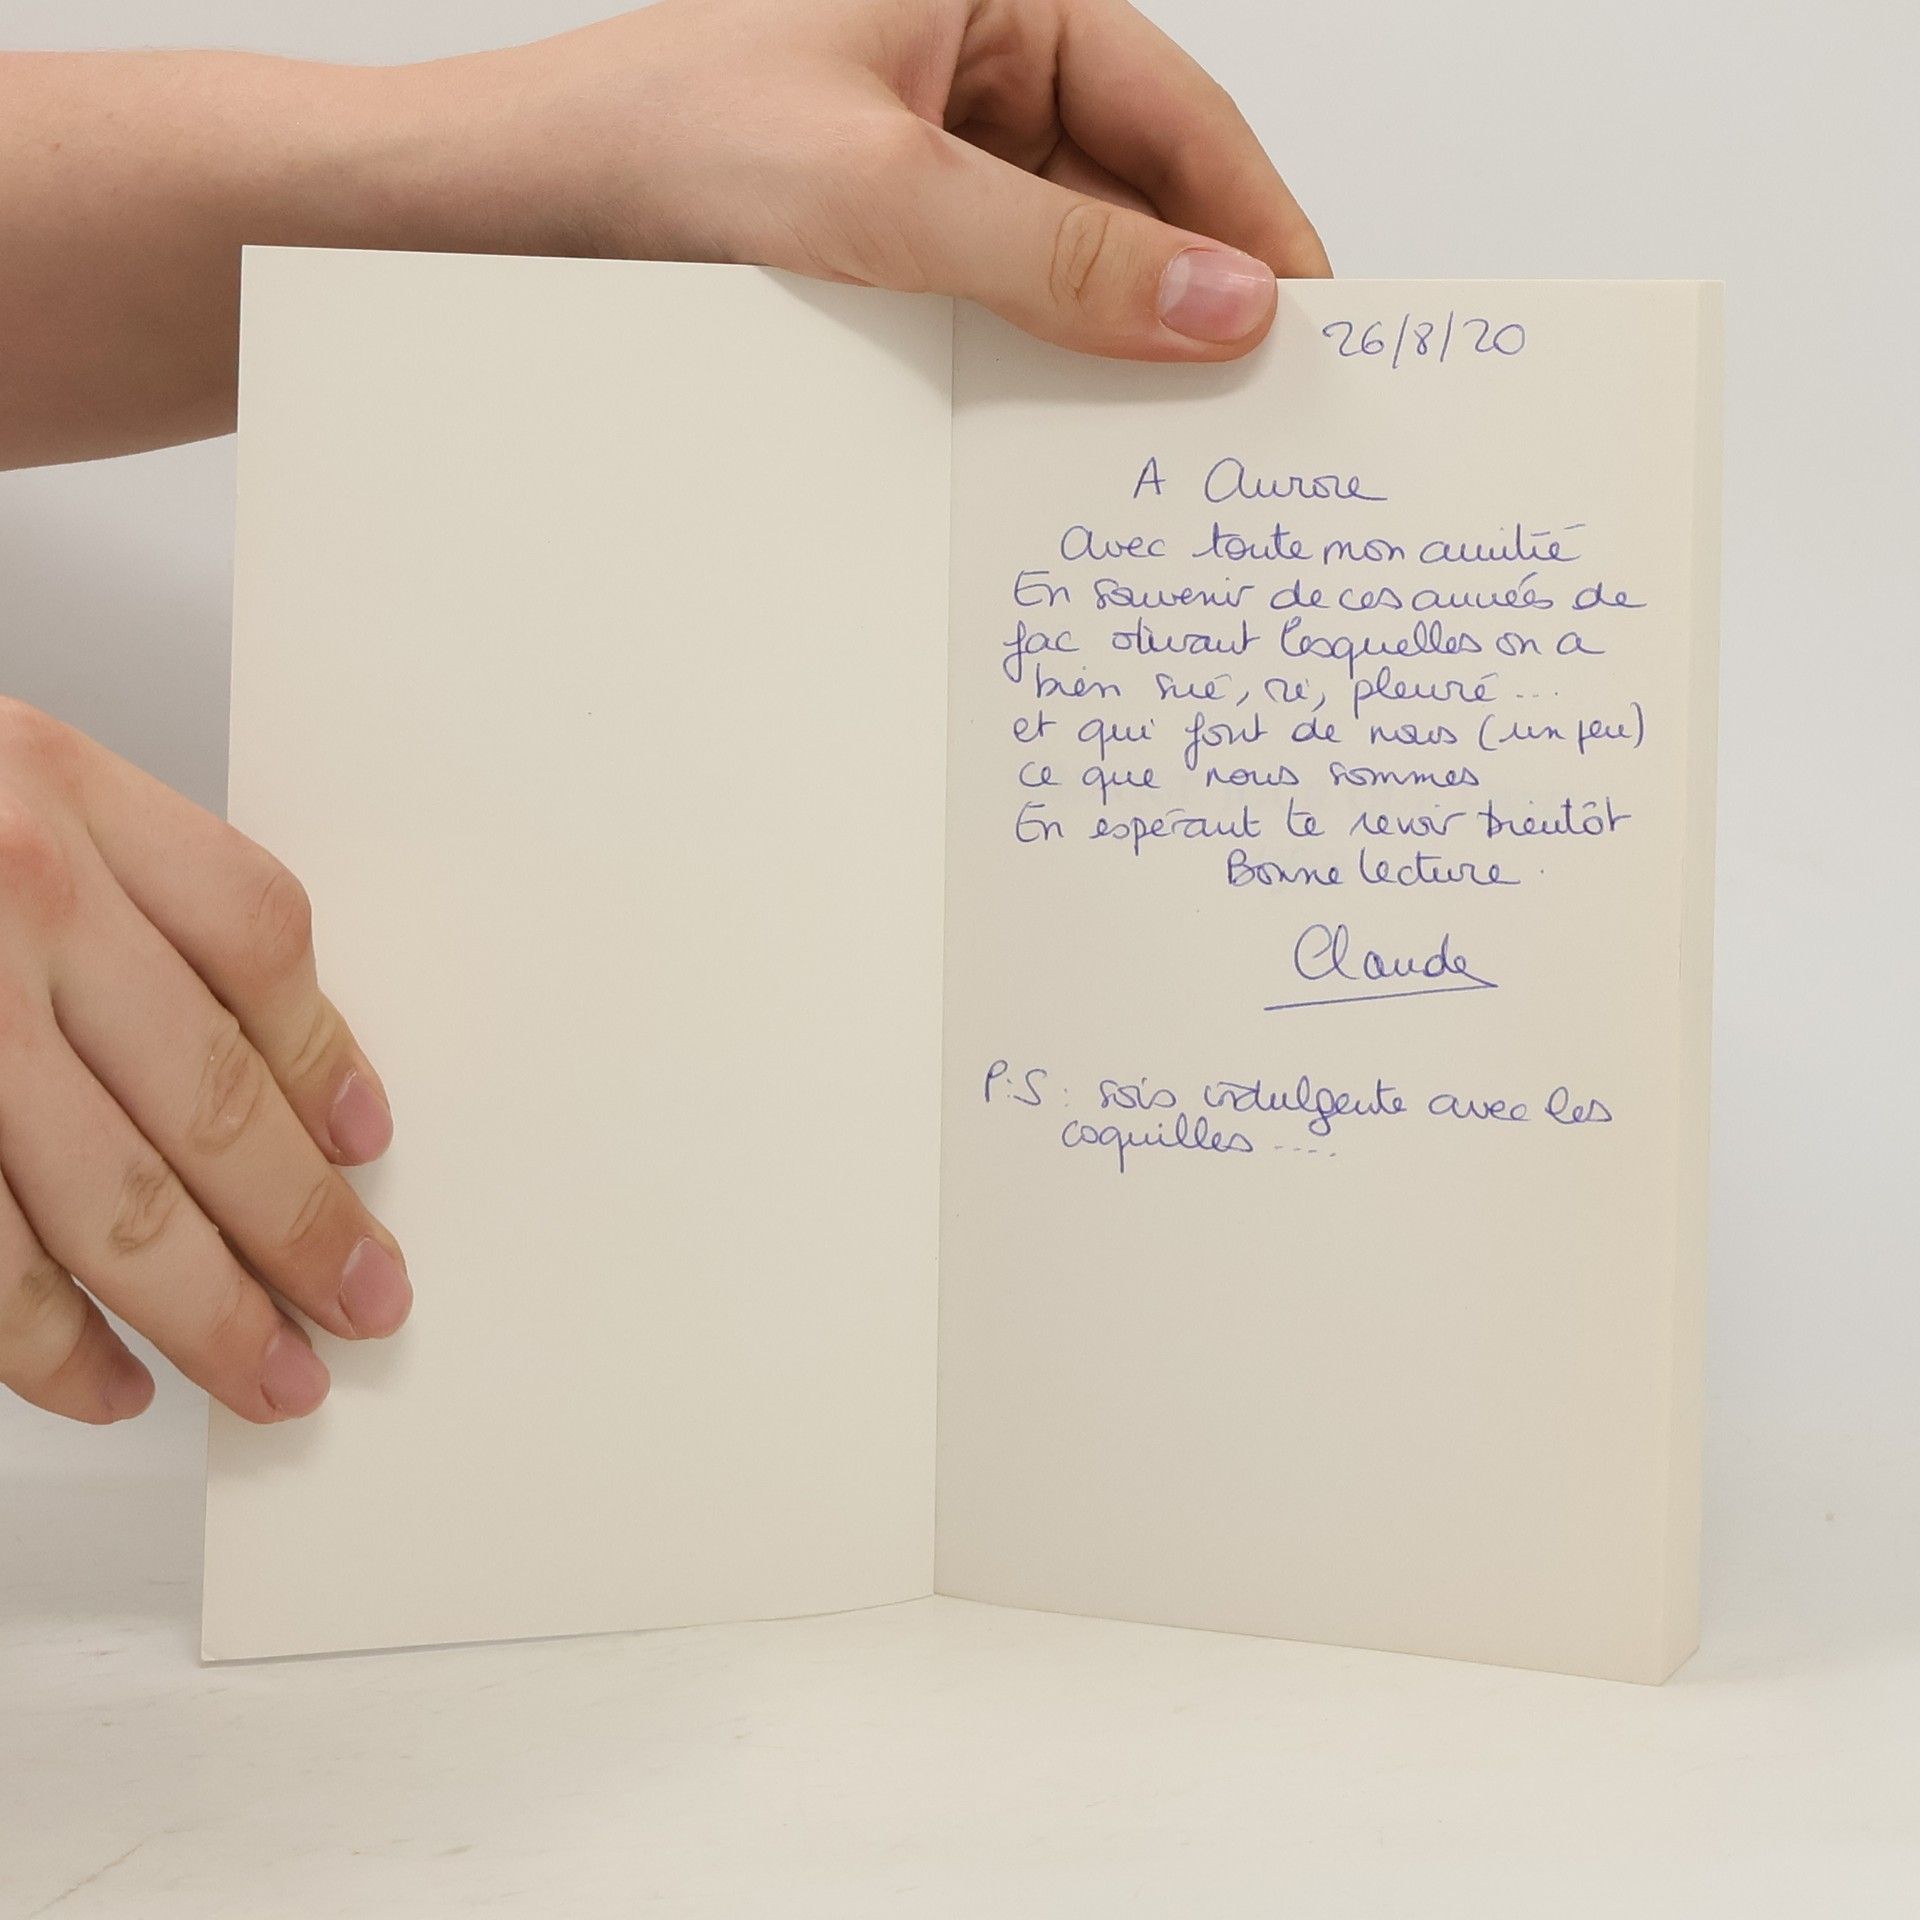 26/8/20
A Aurore
Avec toute mon amitié
En souvenir de ces années de
fac durant lesquelles on a
bien sué, ri, pleuré ...
et qui font de nous (un peu)
ce que nous sommes
En espérant te revoir bientôt
Bonne lecture.
Claude
P.S : sois indulgente avec les
coquilles ....